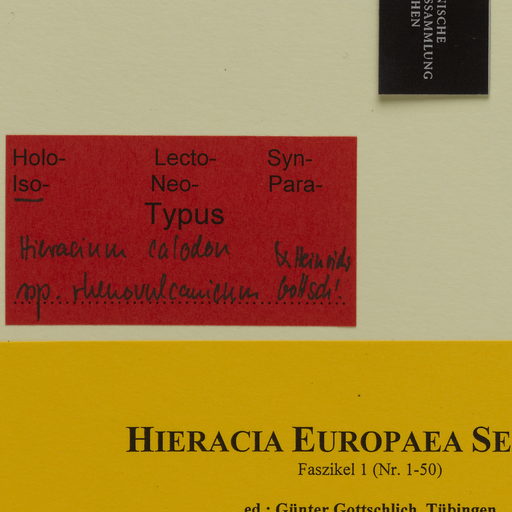 NISCHE
SSAMMLUNG
HEN
Holo- Lecto- Syn-
Iso- Neo- Para-
Typus
Hieracium calodon
ssp. rhenovulcanicum Gottschl.
HIERACIA EUROPAEA SE
Faszikel 1 (Nr. 1-50)
ed.: Günter Gottschlich, Tübingen